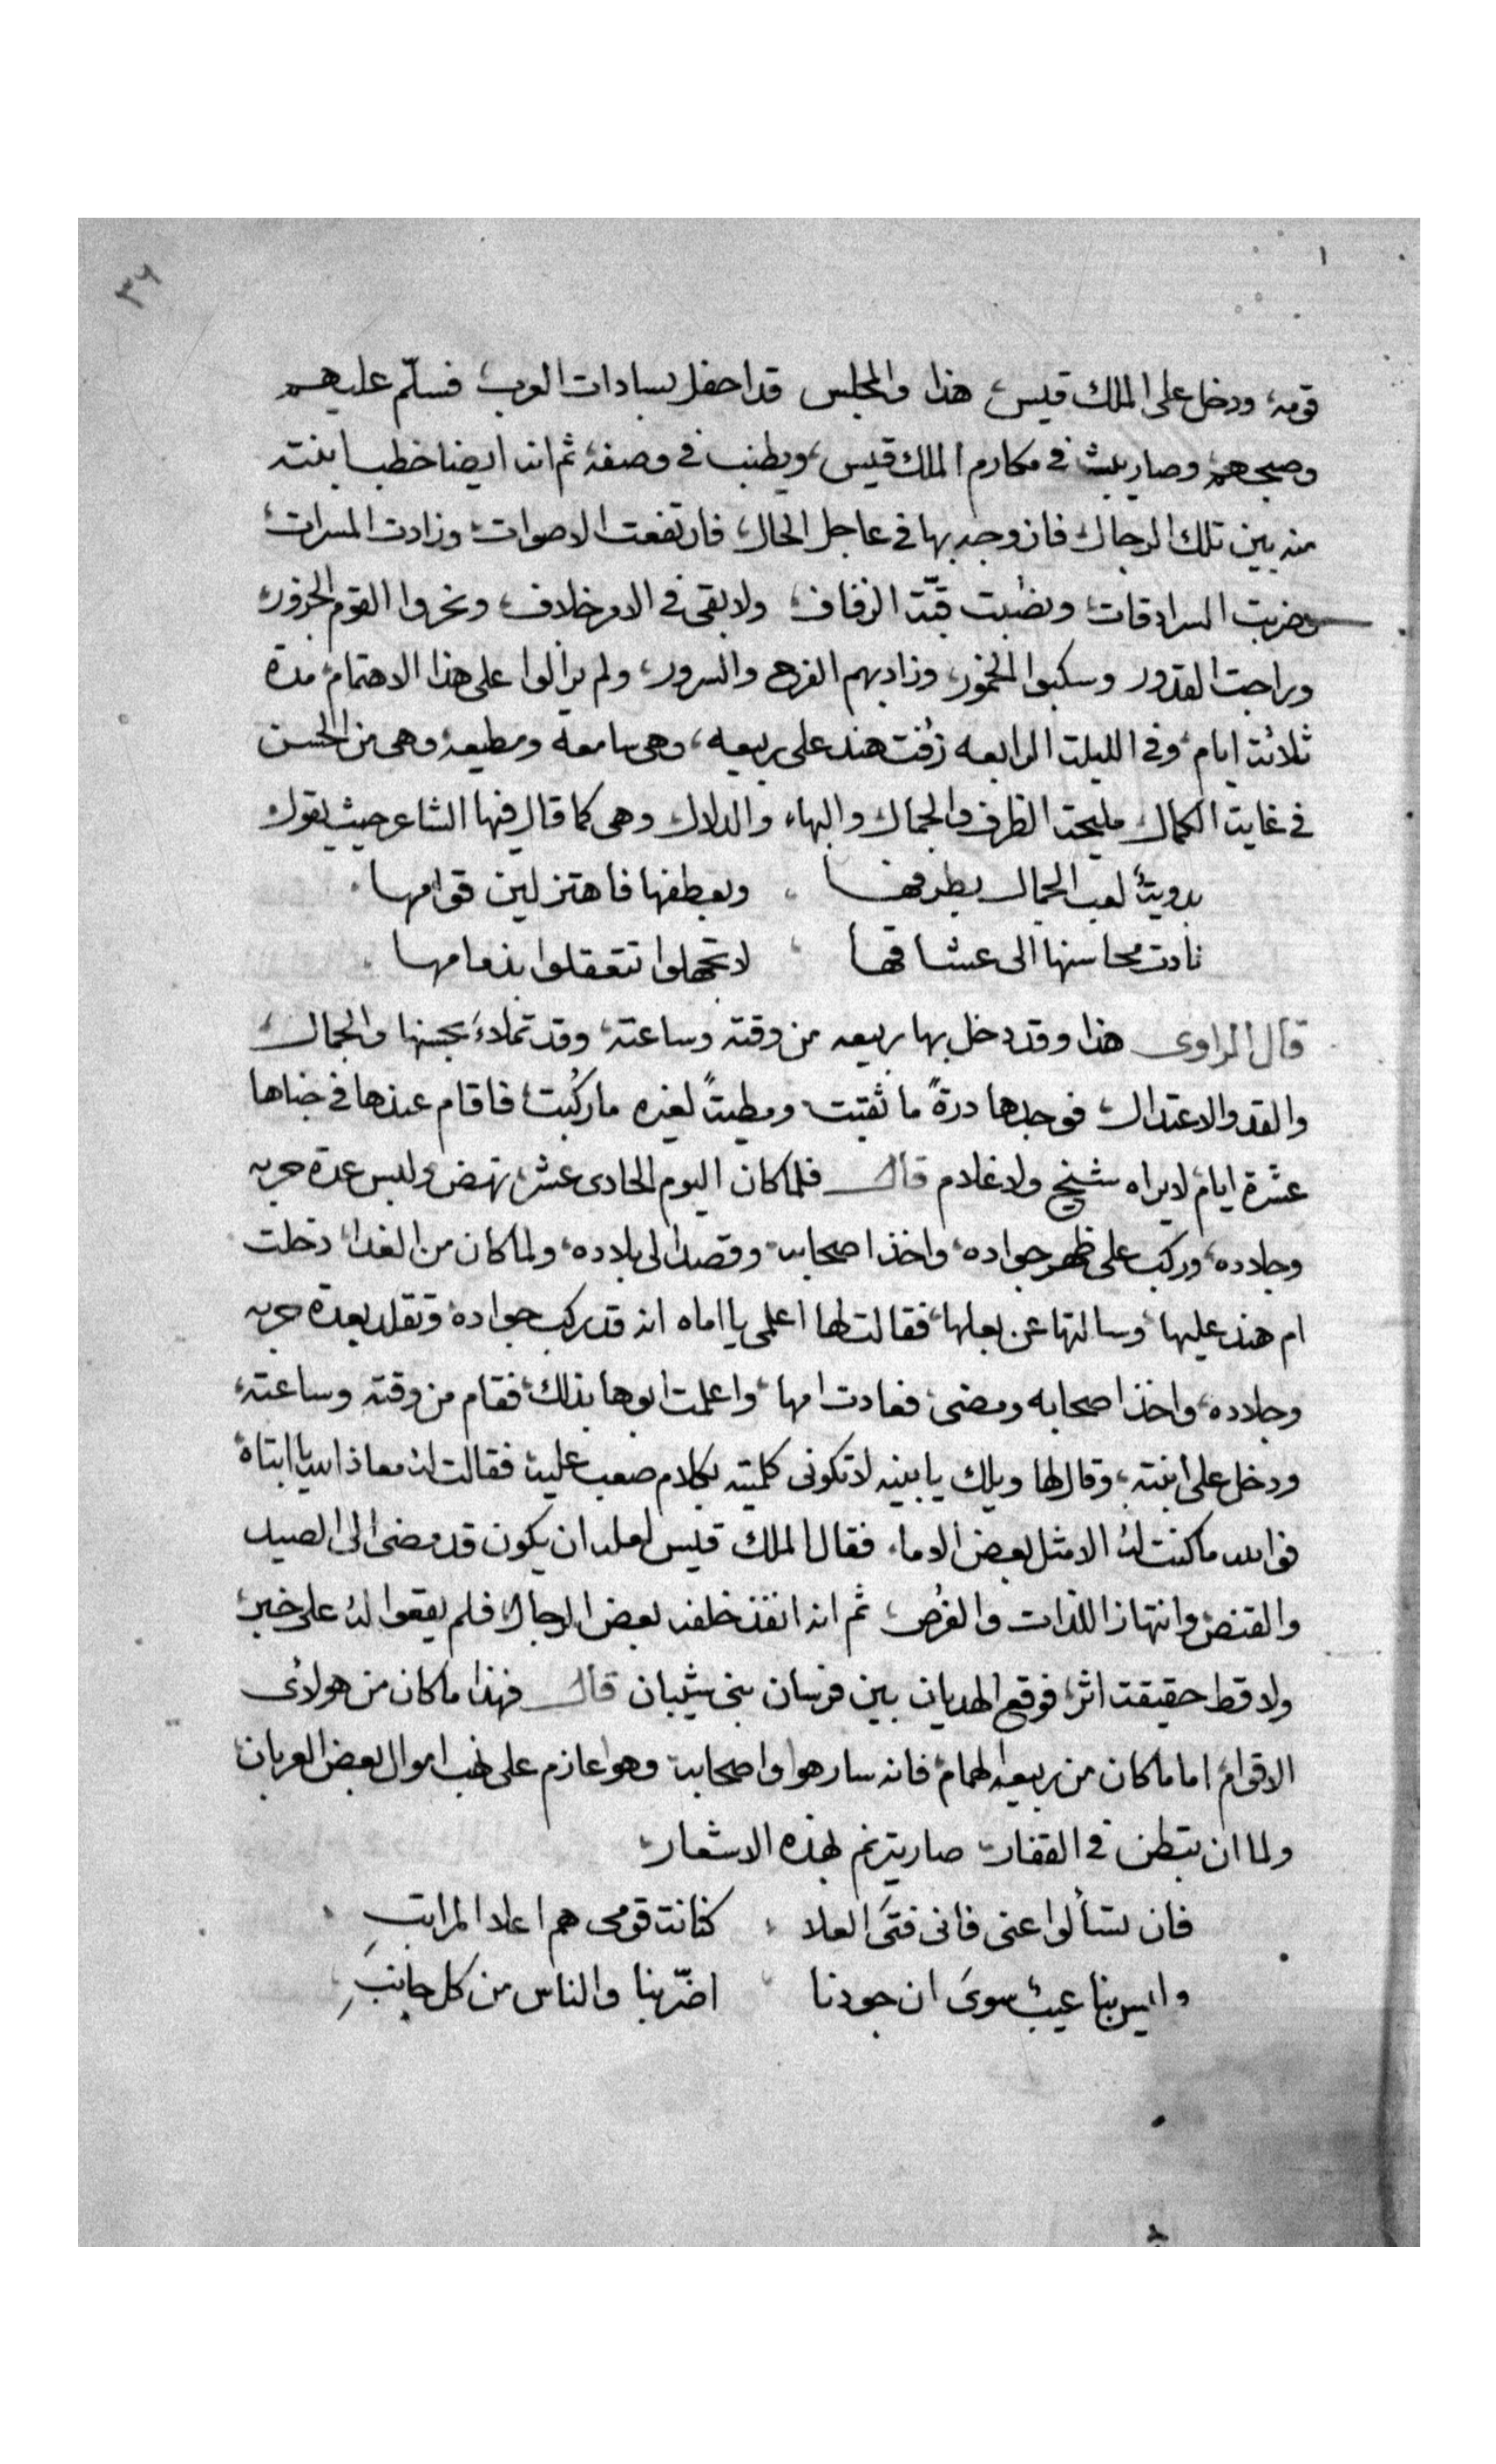 ٣٦
قومه، ودخل على الملك قيس، هذا والمجلس قد احفل بسادات العرب، فسلّم عليهم
وصبحهم، وصار يبث في مكارم الملك قيس، ويطنب في وصفه، ثم انه ايضا خطب ابنته
منه بين تلك الرجال، فازوجه بها في عاجل الحال، فارتفعت الاصوات، وزادت المسرات،
وضربت السرادقات، ونصُبت قبّة الزفاف، ولا بقى في الامر خلاف، ونحروا القوم الجزور،
وراجت القدور وسكبوا الخمور، وزاد بهم الفرح والسرور، ولم يزالوا على هذا الاهتمام، مدة
ثلاثة ايام، وفي الليلة الرابعه زُفت هند على ربيعه، وهي سامعة ومطيعه، وهي من الحسن
في غاية الكمال مليحة الظرف والجمال والبهاء والدلال وهي كما قال فيها الشاعر حيث يقول
بدويةٌ لعب الجمال بطرفها ، وبعطفها فاهتز لين قوامها
نادت محاسنها الى عشاقها ، لا تجهلوا تتعقلوا بذمامها
قال الراوى هذا وقد دخل بها ربيعه من وقته وساعته، وقد تملاءَ بحسنها والجمال،
والقد والاعتدال، فوجدها درةً ما ثقبت ومطيةً لغيره ما ركُبت، فاقام عندها في خباها
عشرة ايام، لا يراه شيخ ولا غلام قال فلما كان اليوم الحادى عشر، نهض ولبس عدة حربه
وجلاده، وركب على ظهر جواده، واخذ اصحابه، وقصد الى بلاده، ولما كان من الغد، دخلت
ام هند عليها، وسالتها عن بعلها، فقالت لها اعلمى يا اماه انه قد ركب جواده، وتقلد بعدة حربه
وجلاده، واخذ اصحابه ومضى، فعادت امها، واعلمت ابوها بذلك، فقام من وقته وساعته،
ودخل على ابنته، وقال لها ويلك يا بنيه لا تكونى كلمتيه بكلام صعب عليه، فقالت له معاذ الله يا ابتاه
فوالله ما كنت له الا مثل بعض الاماء، فقال الملك قيس لعله ان يكون قد مضى الى الصيد
والقنص، وانتهاز اللذات والفرُص، ثم انه انفذ خلفه بعض الرجال، فلم يقعوا له على خبر،
ولا قط حقيقة اثر، فوقع الهديان بين فرسان بني شيبان قال فهذا ما كان من هولائى
الاقوام، اما ما كان من ربيعه الهمام، فانه سار هو واصحابه وهو عازم على نهب اموال بعض العربان
ولما ان تبطن في القفار، صار يترنم بهذه الاشعار،
فان تسألوا عنى فانى فتىَ العلا ، كنانة قومى هم اعلا المراتبِ
وليس بنا عيبٌ سوىَ ان جودنا ، اضرّ بنا والناس من كل جانبِ